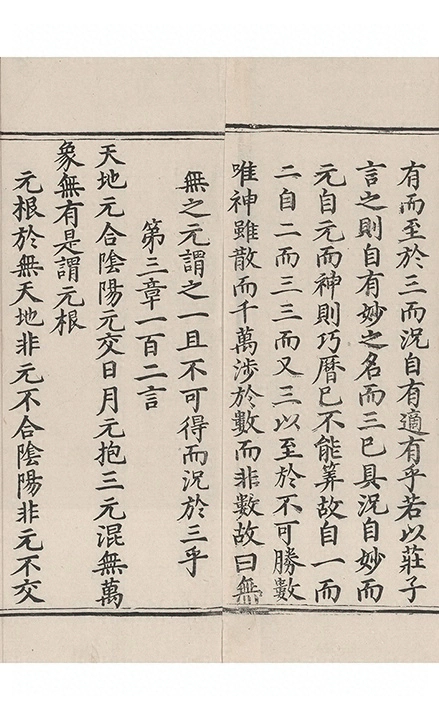 有而至於三而況自有適有乎若以莊子
言之則自有妙之名而三已具況自妙而
元自元而神則巧曆已不能筭故自一而
二自二而三三而又三以至於不可勝數
唯神雖散而千萬涉於數而非數故曰無
無之元謂之一且不可得而況於三乎
第三章一百二言
天地元合陰陽元交日月元抱三元混無萬
象無有是謂元根
元根於無天地非元不合陰陽非元不交